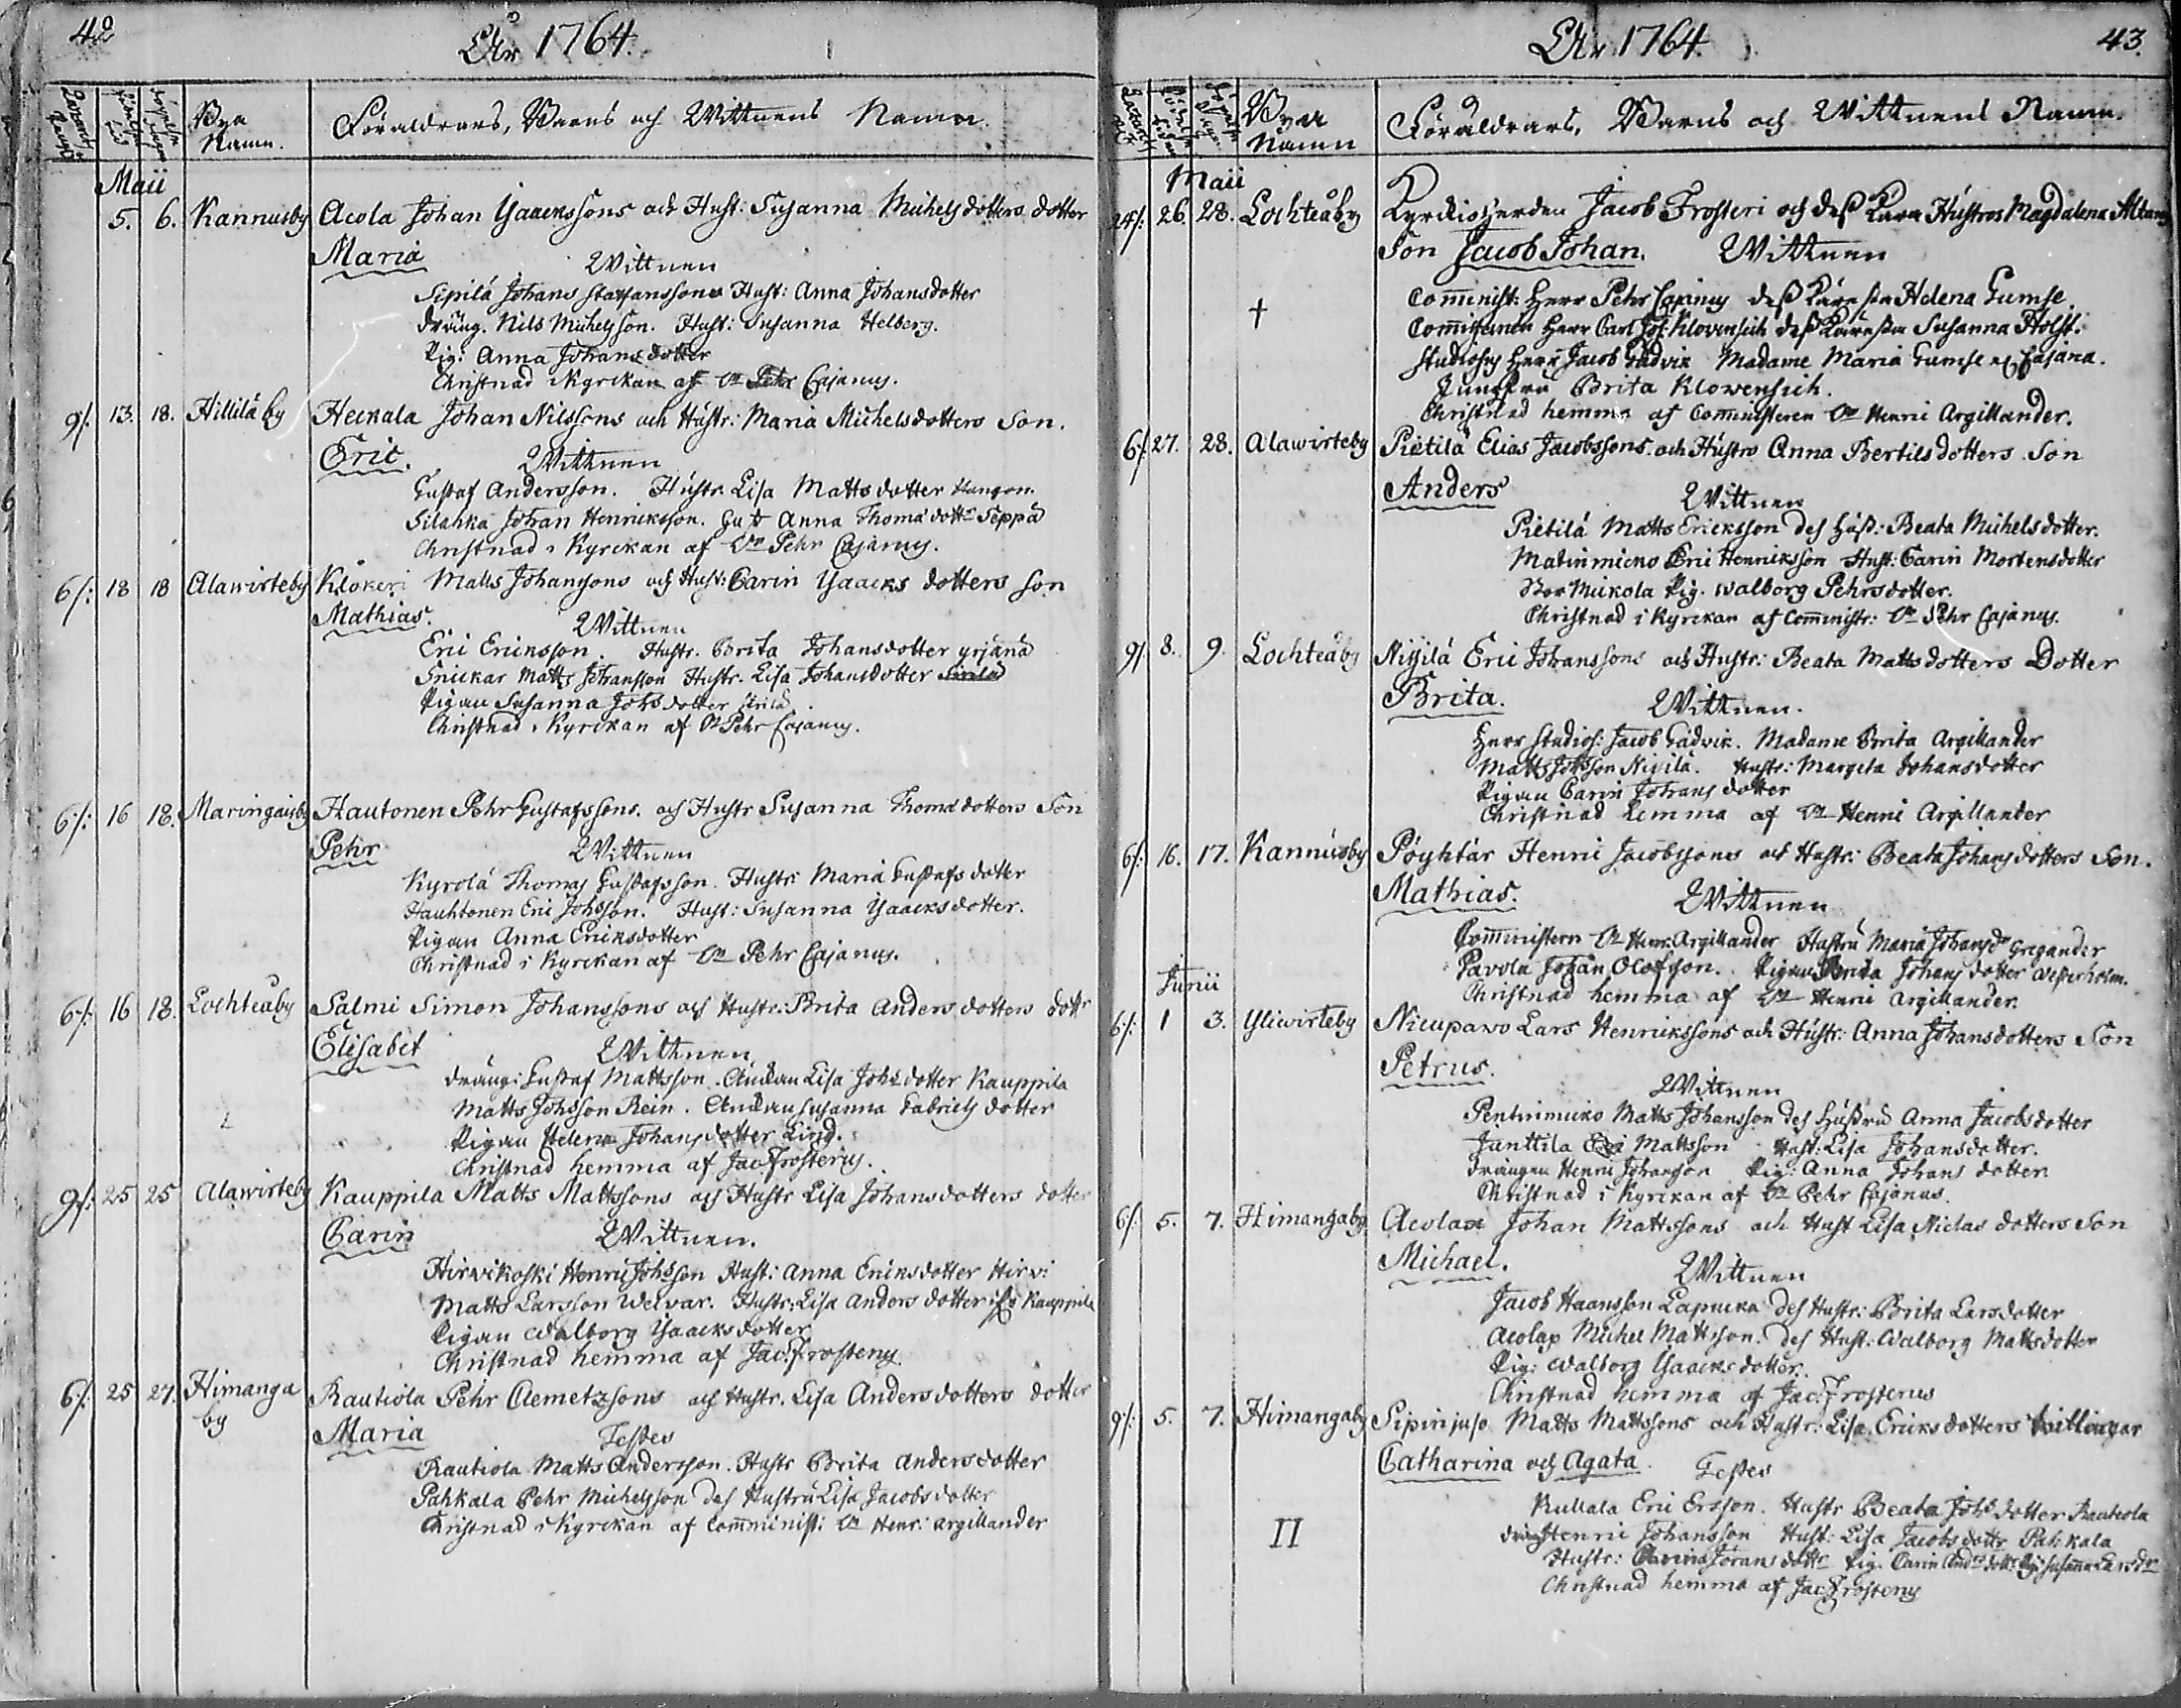 42
Åhr 1764.
Bya Namn.
Föräldrars, Barns och Wittnens Namn.
Maii
5. 6. Kannusby Acola Johan Ysaackssons och Hust: Susanna Michelsdotters dotter
Maria Wittnen
Sipilä Johans Staffanssons Hust: Anna Johansdotter
dräng. Nils Michelsson. Hust: Susanna Helberg.
Pig: Anna Johansdotter
Christnad i Kyrckan af Vn Pehr Cajanus.
9/: 13. 18. Hillilä by Heickala Johan Nilssons och Hustr: Maria Michelsdotters Son.
Eric. Wittnen
Gustaf Andersson. Hustr. Lisa Mattsdotter
Silahka Johan Henricksson. Anna Thomä dottr Seppä
Christnad i Kyrckan af Vn Pehr Cajanus.
6/: 18 18 Alawirteby Klökeri Matts Johansons och Hust: Carin Ysaacks dotters Son
Mathias. Wittnen
Eric Ericksson. Hustr. Brita Johansdotter yrjänä
Snickar Matts Johansson Hustr. Lisa Johansdotter
Pigan Susanna Johsdotter
Christnad i Kyrckan af Vn Pehr Cajanus.
6/: 16 18. Maringaisby Hautonen Pehr Gustafssons. och Hustr Susanna Thomädotters Son
Pehr Wittnen
Kyrolä Thomas Gustafsson. Hustr: Maria Gustafs dotter
Hauhtonen Eric Johsson. Hust: Susanna Ysaacksdotter.
Pigan Anna Ericksdotter
Christnad i Kyrckan af Vn Pehr Cajanus.
6/: 16 18. Lochteåby Salmi Simon Johanssons och Hustr: Brita Anders dotters dottr
Elisabet Wittnen
dräng: Gustaf Mattsson. Enckan Lisa Johsdotter Kauppila
Matts Johsson Rein. Enckan Susanna Gabriels dotter
Pigan Helena Johansdotter Lind.
Christnad hemma af Jac: Frosterus.
9/: 25 25 Alawirteby Kauppila Matts Mattssons och Hustr Lisa Johansdotters dotter
Carin Wittnen.
Hirwikoski Henric Johsson Hust: Anna Ericksdotter Hirwi
Matts Larsson Welwar. Hustr: Lisa Anders dotter Kauppila
Pigan Walborg Ysaacksdotter
Christnad hemma af Jac: Frosterus.
6/: 25 27. Himanga by Rautiola Pehr Clemetzsons och Hustr. Lisa Andersdotters dotter
Maria Testes
Rautiola Matts Andersson. Hustr Brita Andersdotter
Pahkala Pehr Michelsson des Hustru Lisa Jacobsdotter
Christnad i Kyrckan af Comminist: Vn Henr: Argillander
43.
Åhr 1764.
Byar Namn
Föräldrars, Barns och Wittnens Namn.
Maii
24/: 26. 28. Lochteåby Kyrckioherden Jacob Frosteri och dess Kära Hustros Magdalena
Son Jacob Johan. Wittnen
† Comminist: Herr Pehr Cajanus dess Kära Helena Gumse.
Comministern Herr Carl Joh: Klowensich dess Kära Susanna Holst.
Studiosus Herr Jacob Gadvik Madame Maria Gumse Cajana.
Jungfru Brita Klowensich.
Christnad hemma af Comministeren Vn Henric Argillander.
6/: 27. 28. Alawirteby Pietilä Elias Jacobssons. och Hustro Anna Bertilsdotters Son
Anders Wittnen
Pietilä Matts Ericksson des Hust: Beata Michelsdotter.
Matinmicko Eric Henricksson Hust: Carin Mortensdotter
Mickola Pig. Walborg Pehrsdotter.
Christnad i Kyrckan af Comministr: Vn Pehr Cajanus.
9/ 8. 9. Lochteåby Niyilä Eric Johanssons och Hustr: Beata Mattsdotters Dotter
Brita. Wittnen.
Herr Studios: Jacob Gadvik. Madame Brita Argillander
Matts Johsson Niyilä. Hustr: Margeta Johansdotter
Pigan Carin Johansdotter
Christnad hemma af Vn Henric Argillander
6/: 16. 17. Kannusby Pöyhtär Henric Jacobssons och Hustr: Beata Johansdotters Son.
Mathias. Wittnen
Comministern Vn Henr: Argillander Hustru Maria Johansdr Gregander
Pavola Johan Olofsson. Pigan Brita Johans dotter Westerholm.
Christnad hemma af Vn Henric Argillander.
Junii
6/: 1 3. Yliwirteby Nicupawo Lars Henrickssons och Hustr: Anna Johansdotters Son
Petrus. Wittnen
Pentinmicko Matts Johansson des Hustru Anna Jacobsdotter
Junttila Eric Mattsson Hust: Lisa Johansdotter.
Drängen Henric Johansson Pig: Anna Johans dotter.
Christnad i Kyrckan af Vn Pehr Cajanus.
6/: 5. 7. Himangaby Acolax Johan Mattssons och Hust Lisa Niclas dotters Son
Michael. Wittnen
Jacob Haansson Lapucka des Hustr: Brita Larsdotter
Acolax Michel Mattsson. des Hust: Walborg Mattsdotter
Pig: Walborg Ysaacksdotter.
Christnad hemma af Jac: Frosterus
9/: 5. 7. Himangaby Sipinjuso Matts Mattssons och Hustr: Lisa Ericksdotters twillingar
Catharina och Agata. Testes
Rullala Eric Ersson. Hustr Beata Johsdotter Rautiola
II dräng Henric Johansson Hust: Lisa Jacobs dottr Pahkala
Hustr: Carin Jöransdottr Pig. Carin Andrsdottr Pig: Susanna Larsdr
Christnad hemma af Jac: Frosterus